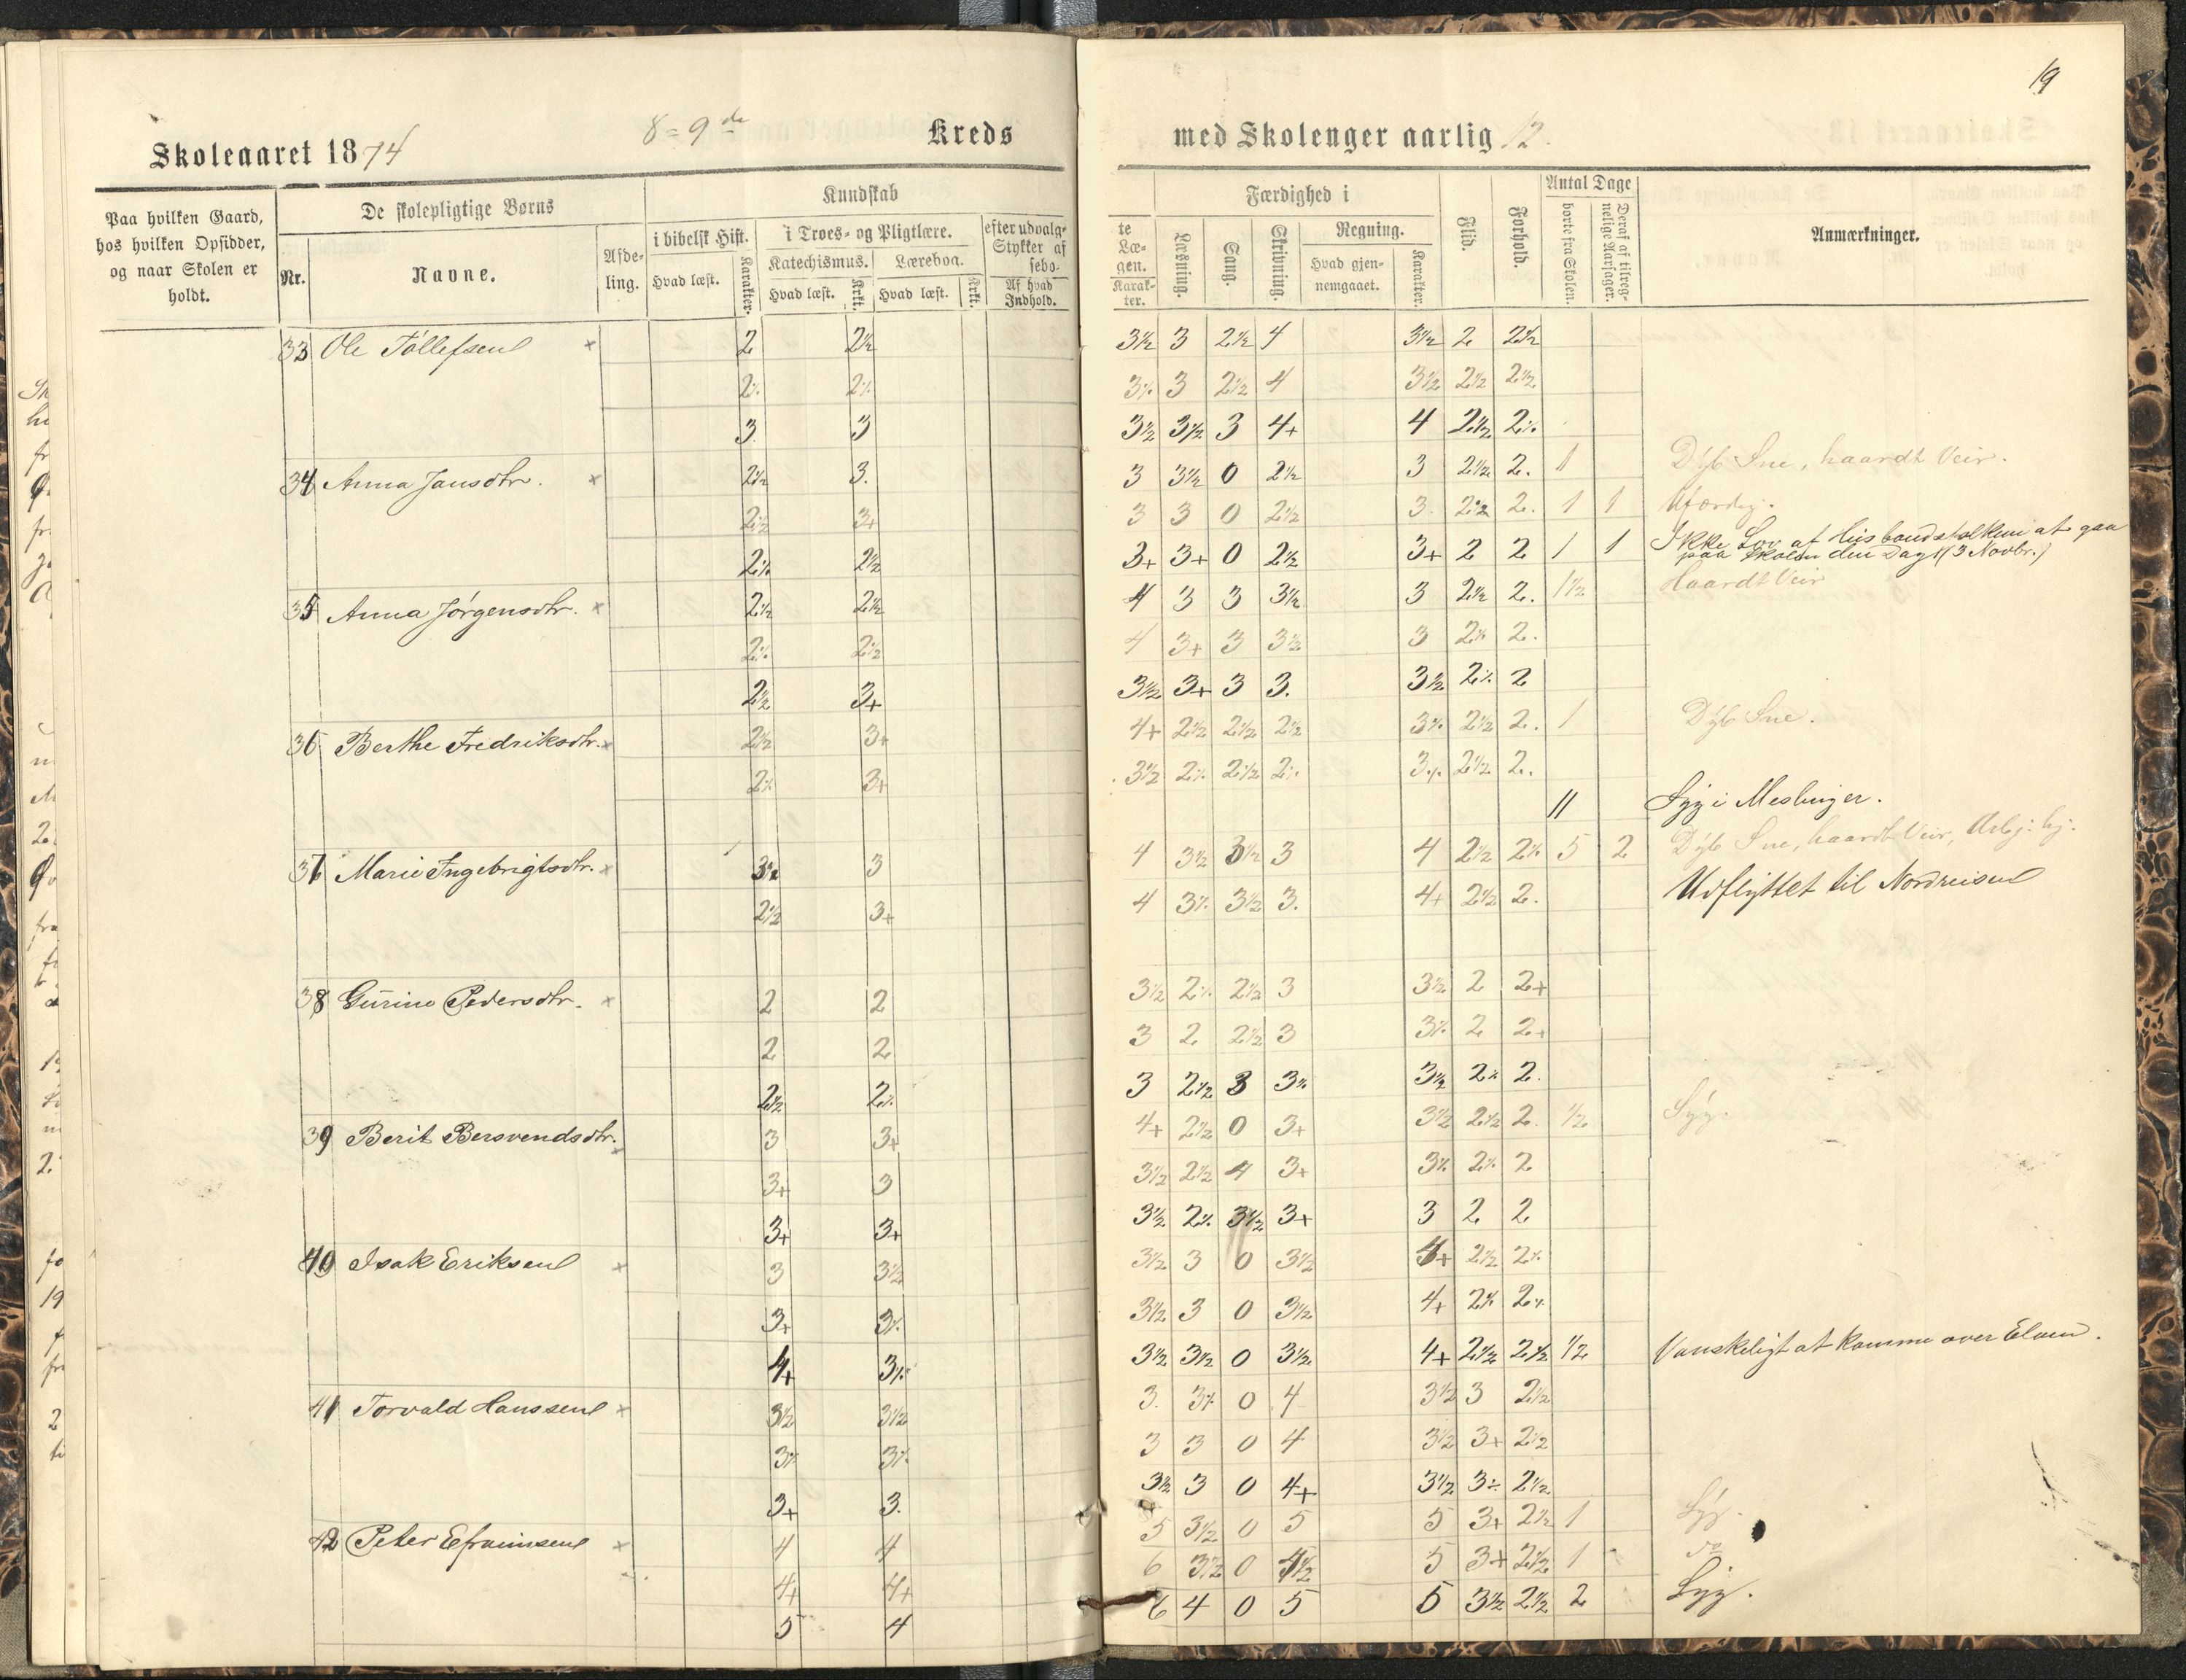 19
Skoleaaret 1874 8=9de Kreds med Skolenger aarlig 12.
Paa hvilken Gaard, hos hvilken Opsidder, og naar Skolen er holdt.
De skolepligtige Børns
Nr. Navne. Afdeling.
Kundskab
i bibelsk Hist. i Troes- og Pligtlære. efter udvalgte Stykker af Læsebogen.
Hvad læst. Karakter. Katechismus. Hvad læst. Krkt. Lærebog. Hvad læst. Krkt. Af hvad Indhold. Karakter.
Færdighed i
Læsning. Sang. Skrivning. Regning. Hvad gjennemgaaet. Karakter.
Flid. Forhold.
Antal Dage
borte fra Skolen. Deraf af tilregnelige Aarsager.
Anmærkninger.
33 Ole Tollefsen x 2 2½ 3½ 3 2½ 4 3½ 2 2½
2½ 2½ 3½ 3 2½ 4 3½ 2½ 2½
3 3 3½ 3½ 3 4+ 4 2½ 2½
34 Anna Jansdtr. x 2½ 3. 3 3½ 0 2½ 3 2½ 2. 1 Dyb Sne, haardt Veir.
2½ 3+ 3 3 0 2½ 3. 2½ 2. 1 1 Ufærdig.
2½ 2½ 3+ 3+ 0 2½ 3+ 2 2 1 1 Ikke Lov af Husbondsfolkene at gaa
paa Skolen den Dag (3 Novbr.)
35 Anna Jørgensdtr. x 2½ 2½ 4 3 3 3½ 3 2½ 2. 1½ Haardt Veir
2½ 2½ 4 3+ 3 3½ 3 2½ 2.
2½ 3+ 3½ 3+ 3 3. 3½ 2½ 2
36 Berthe Fredriksdtr. x 2½ 3+ 4+ 2½ 2½ 2½ 3½ 2½ 2. 1 Dyb Sne.
2½ 3+ 3½ 2½ 2½ 2½ 3½ 2½ 2.
11 Syg i Meslinger.
37 Marie Ingebrigtsdtr. x 3½ 3 4 3½ 3½ 3 4 2½ 2½ 5 2 Dyb Sne, haardt Veir, Arbj. hj.
2½ 3+ 4 3½ 3½ 3. 4+ 2½ 2. Udflyttet til Nordreisen
38 Gurine Pedersdtr. x 2 2 3½ 2½ 2½ 3 3½ 2 2+
2 2 3 2 2½ 3 3½ 2 2+
2½ 2½ 3 2½ 3 3½ 3½ 2½ 2.
39 Berit Bersvendsdtr. x 3 3+ 4+ 2½ 0 3+ 3½ 2½ 2. ½ Syg.
3+ 3 3½ 2½ 4 3+ 3½ 2½ 2
3+ 3+ 3½ 2½ 3½ 3+ 3 2 2
40 Isak Eriksen x 3 3½ 3½ 3 0 3½ 4+ 2½ 2½
3+ 3½ 3½ 3 0 3½ 4+ 2½ 2½
4+ 3½ 3½ 3½ 0 3½ 4+ 2½ 2½ ½ Vanskeligt at komme over Elven.
41 Torvald Hanssen x 3½ 3½ 3. 3½ 0 4 3½ 3 2½
3½ 3½ 3 3 0 4 3½ 3+ 2½
3+ 3. 3½ 3 0 4+ 3½ 3÷ 2½
42 Peter Efraimsen x 4 4 5 3½ 0 5 5 3+ 2½ 1 Syg.
4+ 4+ 6 3½ 0 4½ 5 3+ 2½ 1 do
5 4 6 4 0 5 5 3½ 2½ 2 Syg.